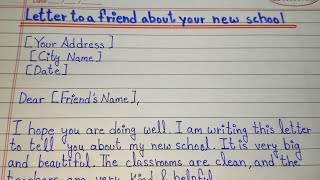 Letter to a friend about your new school
[Your Address]
[City Name]
[Date]
Dear [Friend's Name],
I hope you are doing well. I am writing this letter
to tell you about my new school. It is very big
and beautiful. The classrooms are clean, and the
teachers are very kind & helpful.